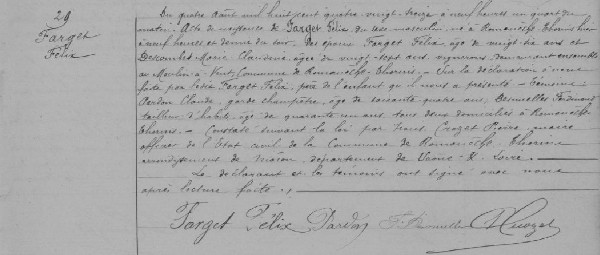 29
Farget
Félix
Du quatre Août mil huit cent quatre-vingt-treize à neuf heures un quart du
matin. Acte de naissance de Farget Félix, du sexe masculin, né à Romanèche-Thorins hier
à neuf heures et demie du soir. Des époux Farget Félix âgé de vingt-six ans et
Descombes Marie Claudine âgée de vingt-sept ans, vignerons, demeurant ensemble
au Moulin-à-Vent, Commune de Romanèche-Thorins. - Sur la déclaration à nous
faite par ledit Farget Félix, père de l'enfant qu'il nous a présenté - Témoins
Dardon Claude, garde champêtre, âgé de soixante quatre ans, Desmulles Ferdinand
tailleur d'habits, âgé de quarante un ans tous deux domiciliés à Romanèche-
Thorins. - Constaté suivant la loi par nous Crozet Pierre, maire
officier de l'Etat civil de la Commune de Romanèche-Thorins
arrondissement de Mâcon, département de Saône-&-Loire.
Le déclarant et les témoins ont signé avec nous
après lecture faite.
Farget Félix Dardon F. Desmulles Crozet